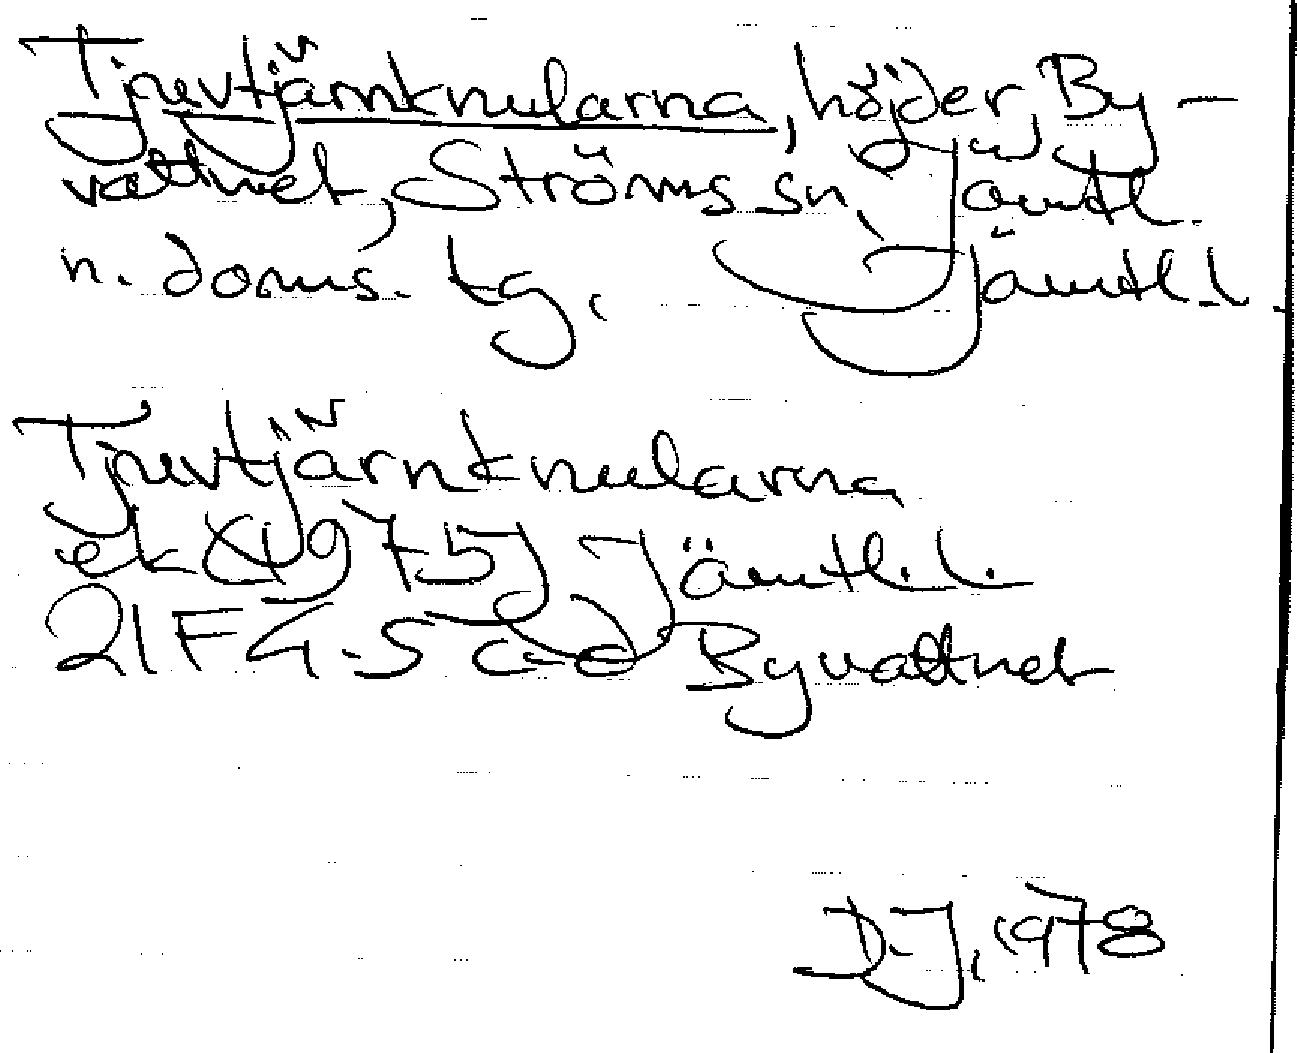 Tjuvtjärnknularna, höjder, By-
vattnet, Ströms sn, Jämtl.
n. doms. tg. Jämtl. l.
Tjuvtjärnknularna
ek (1975) Jämtl. l.
21F 4-5 c-d Byvattnet
D-J, 1978